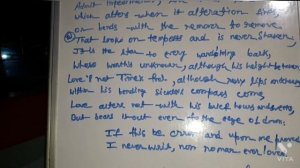 Admit impediment,
which alters when it alteration finds,
or bends with the remover to remove
That looks on tempest and is never shaken;
It is the star to every wandering bark,
whose worth's unknown, although his height be taken
Love's not Time's fool, although rosy lips and cheeks
within his bending sickle's compass come,
Love alters not with his brief hours and weeks,
But bears it out even to the edge of doom.
If this be error and upon me proved
I never writ, nor no man ever loved.
VITA